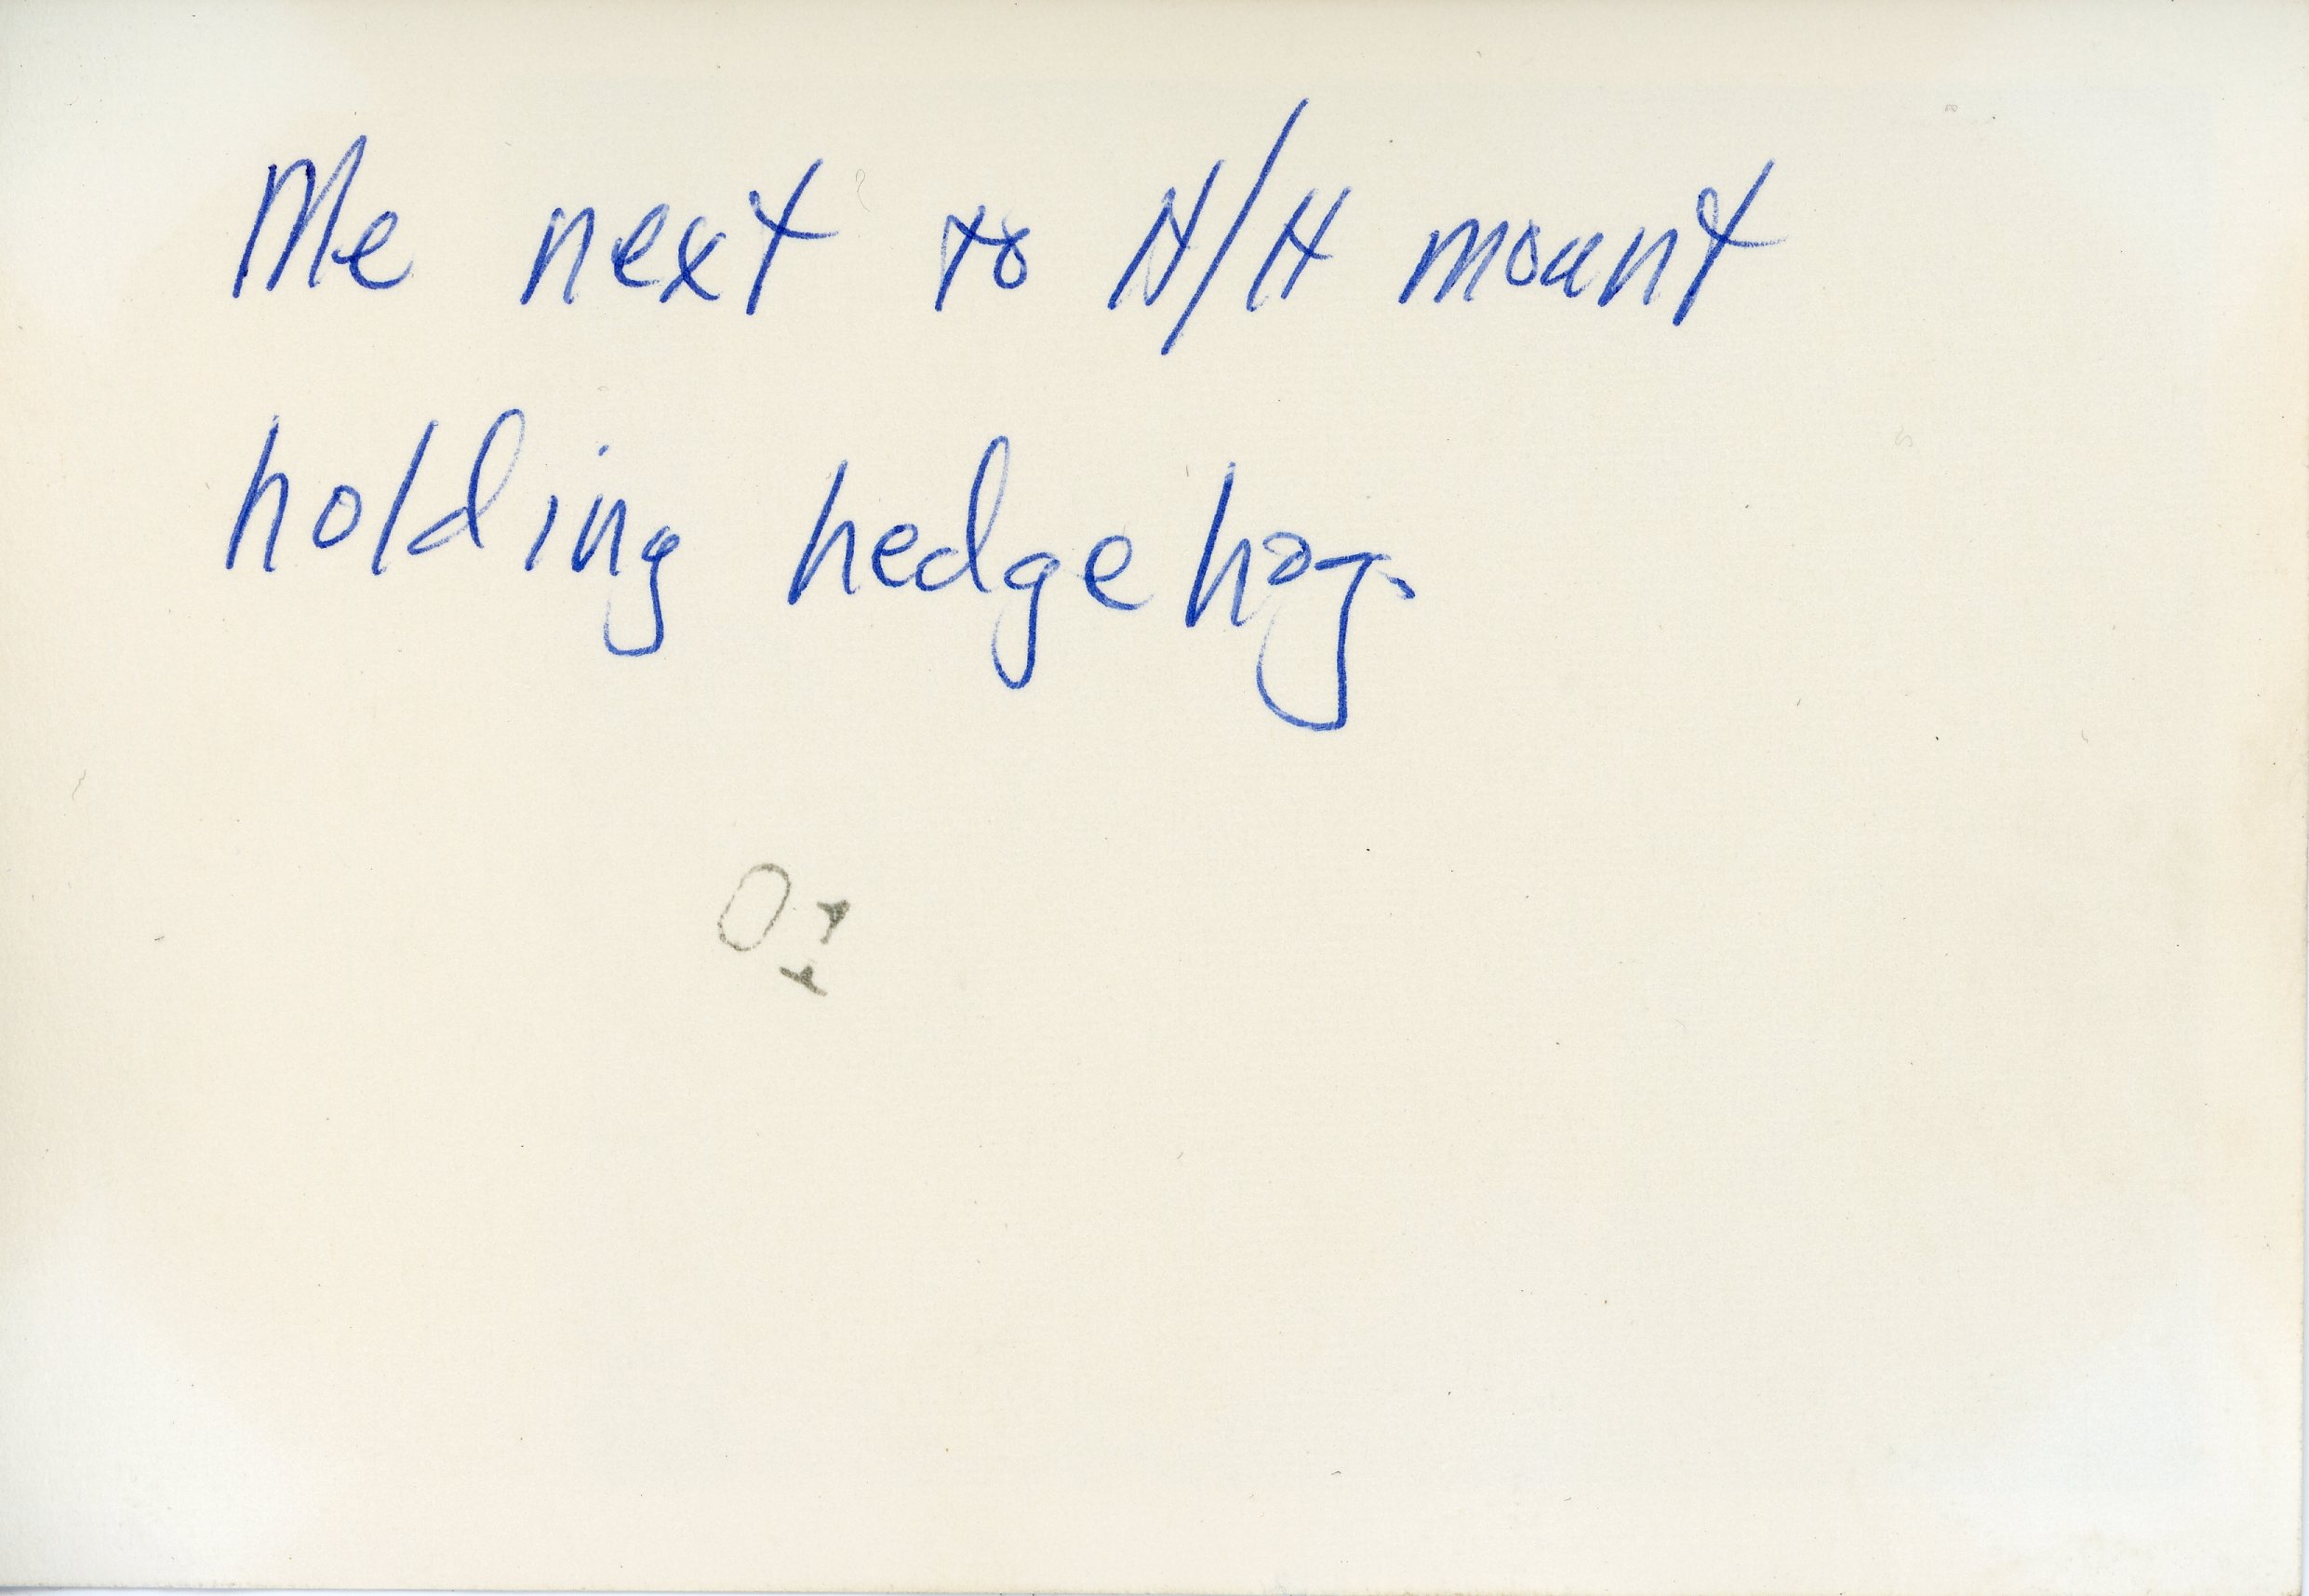 Me next to H/H mount
holding hedgehog.